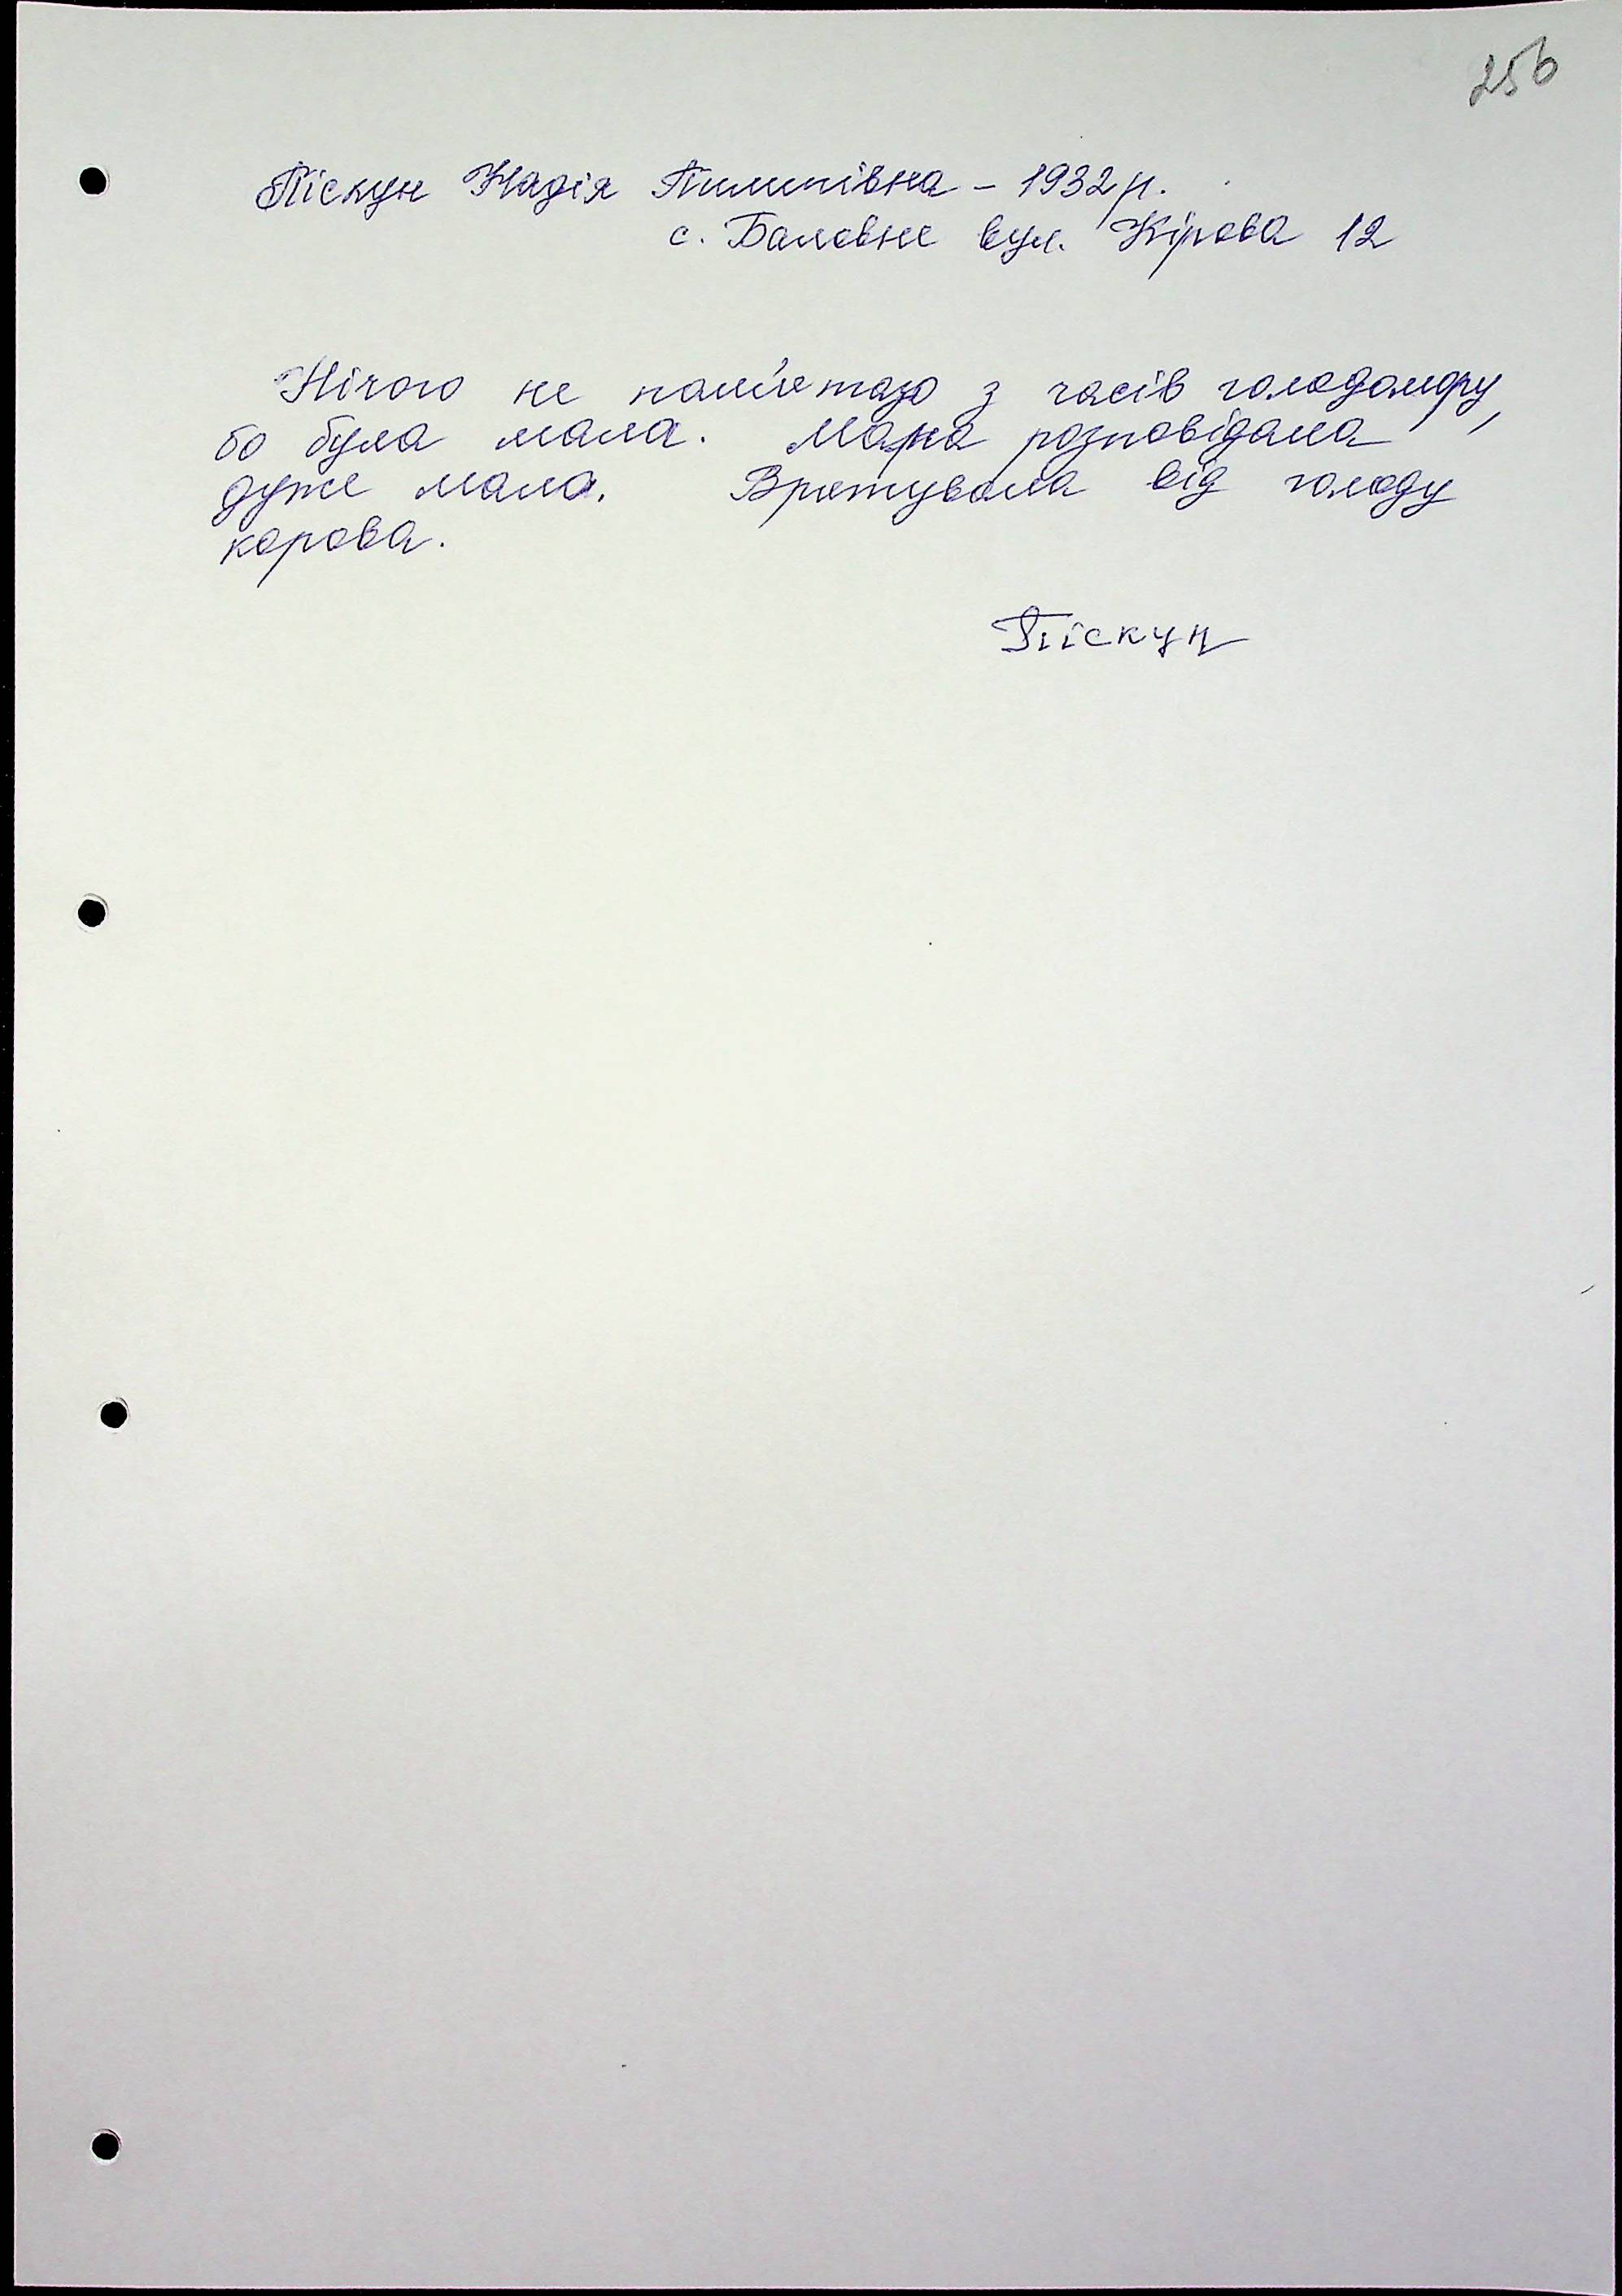 256
Піскун Надія Пилипівна – 1932 р.
с. Баловне вул. Кірова 12
Нічого не пам'ятаю з часів голодомору,
бо була мала. Мама розповідала
дуже мало. Врятувала від голоду
корова.
Піскун